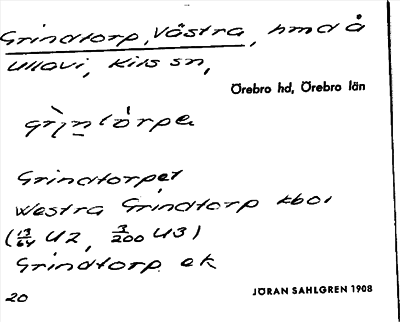 Grindtorp, Västra, hmd å
Ullavi, Kils sn,
Örebro hd, Örebro län
grìntòrpe
Grindtorpet
Westra Grindtorp kbol
(13/64 U2, 3/200 U3)
Grindtorp ek
20
JÖRAN SAHLGREN 1908